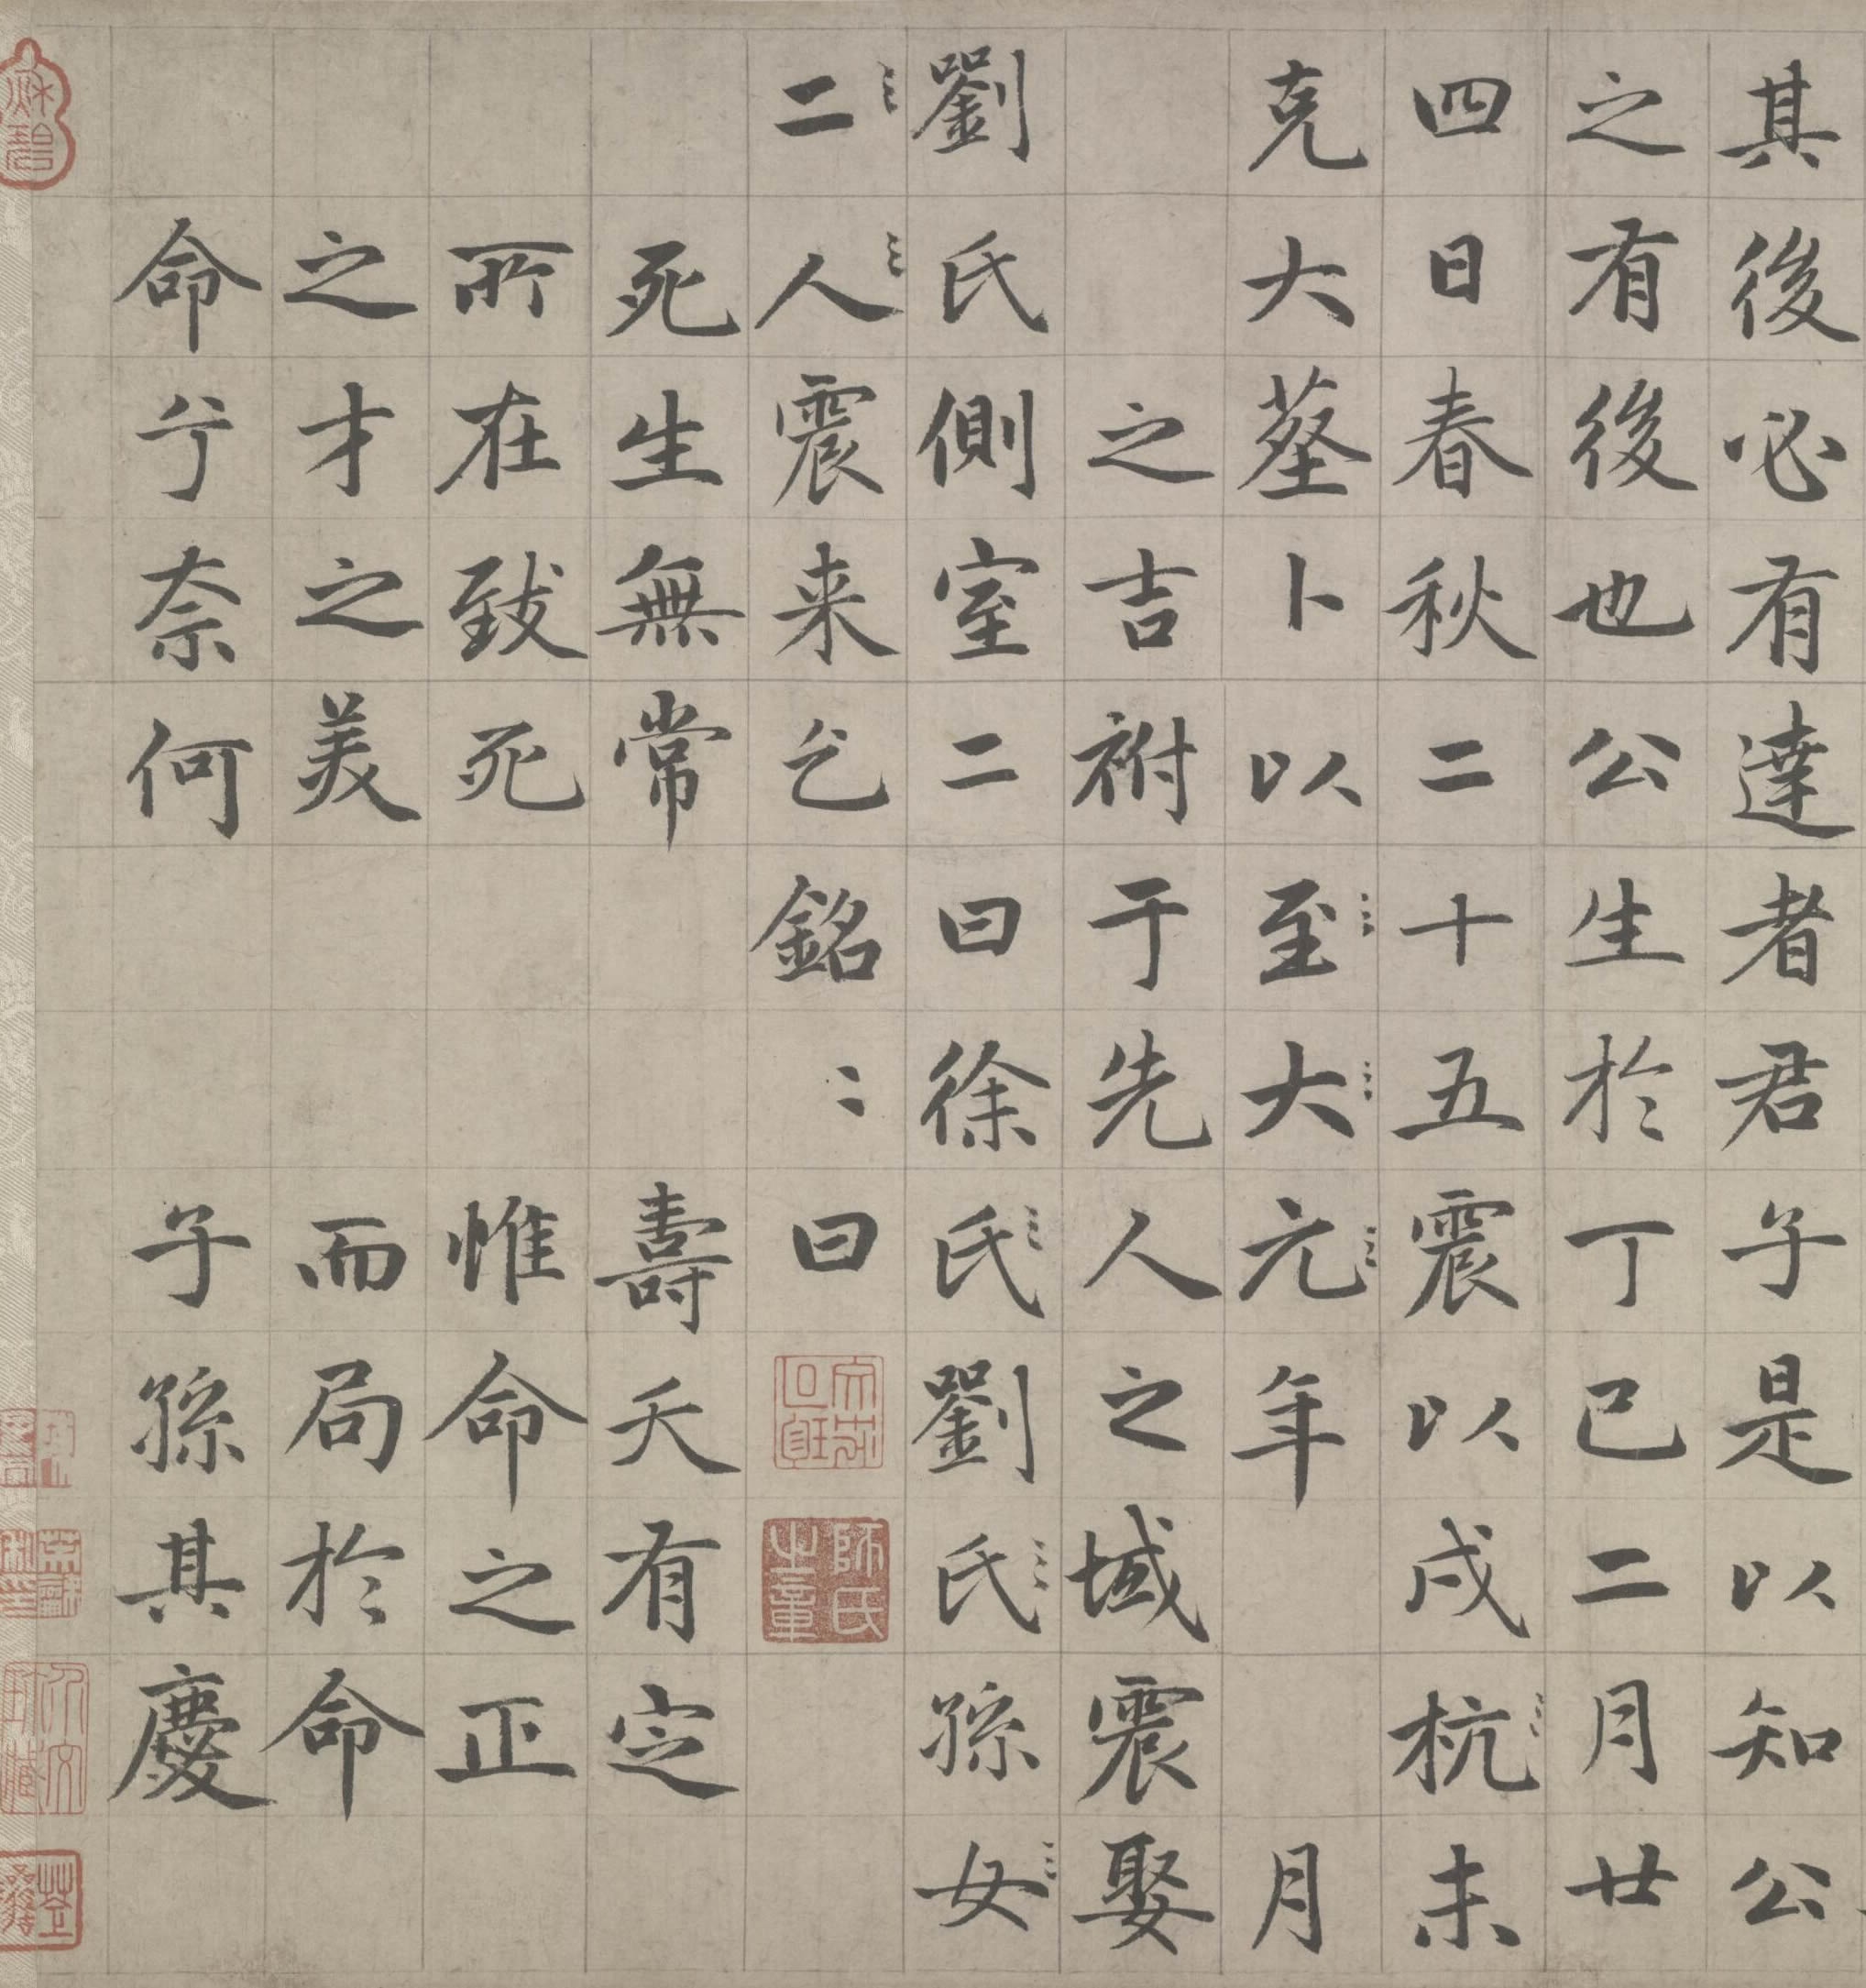 其後必有達者君子是以知公
之有後也公生於丁巳二月廿
四日春秋二十五震以戍杭未
克大塟卜以至大元年　月
之吉祔于先人之域震娶
劉氏側室二曰徐氏劉氏孫女
二人震来乞銘〻曰
師氏之章
死生無常　壽夭有定
所在致死　惟命之正
之才之美　而局於命
命兮奈何　子孫其慶